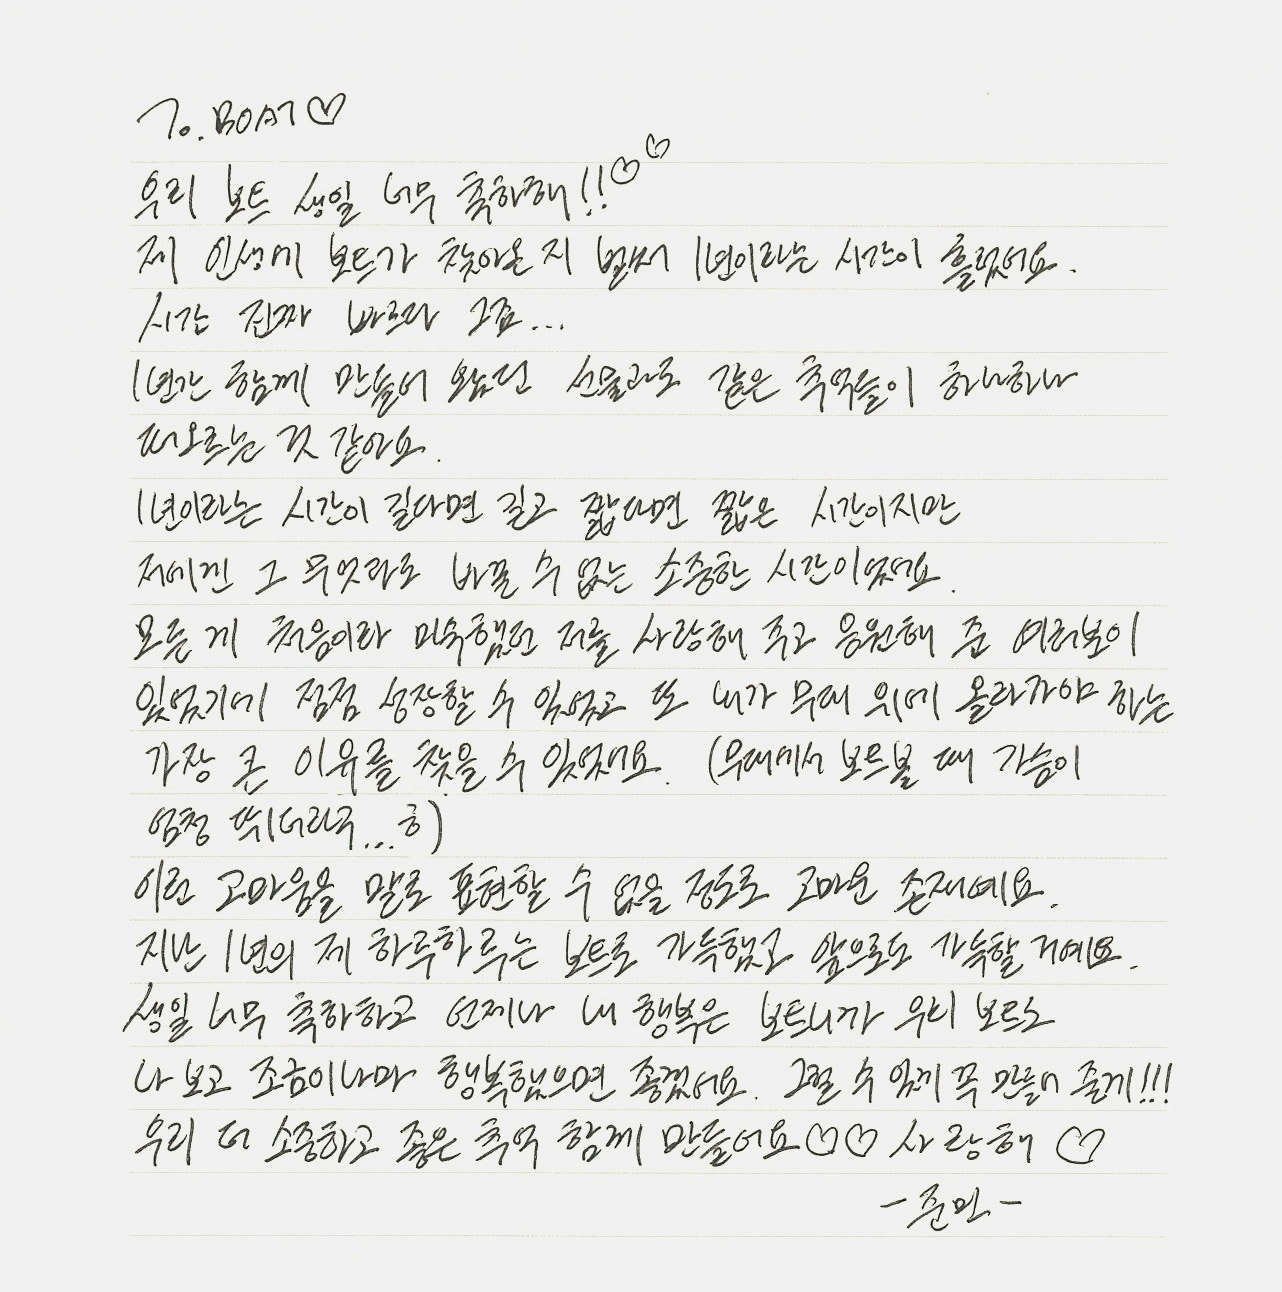 To. BOAT♡
우리 보트 생일 너무 축하해!!♡♡
제 인생에 보트가 찾아온 지 벌써 1년이라는 시간이 흘렀어요.
시간 진짜 빠르다 그쵸...
1년간 함께 만들어 왔던 선물과도 같은 추억들이 하나하나
떠오르는 것 같아요.
1년이라는 시간이 길다면 길고 짧다면 짧은 시간이지만
저에겐 그 무엇과도 바꿀 수 없는 소중한 시간이었어요.
모든 게 처음이라 미숙했던 저를 사랑해 주고 응원해 준 여러분이
있었기에 점점 성장할 수 있었고 또 내가 무대 위에 올라가야 하는
가장 큰 이유를 찾을 수 있었어요. (무대에서 보트볼 때 가슴이
엄청 뛰더라구...ㅎ)
이런 고마움을 말로 표현할 수 없을 정도로 고마운 존재예요.
지난 1년의 제 하루하루는 보트로 가득했고 앞으로도 가득할 거예요.
생일 너무 축하하고 언제나 내 행복은 보트니까 우리 보트도
나 보고 조금이나마 행복했으면 좋겠어요. 그럴 수 있게 꼭 만들어 줄게!!!
우리 더 소중하고 좋은 추억 함께 만들어요♡♡ 사랑해 ♡
-준민-